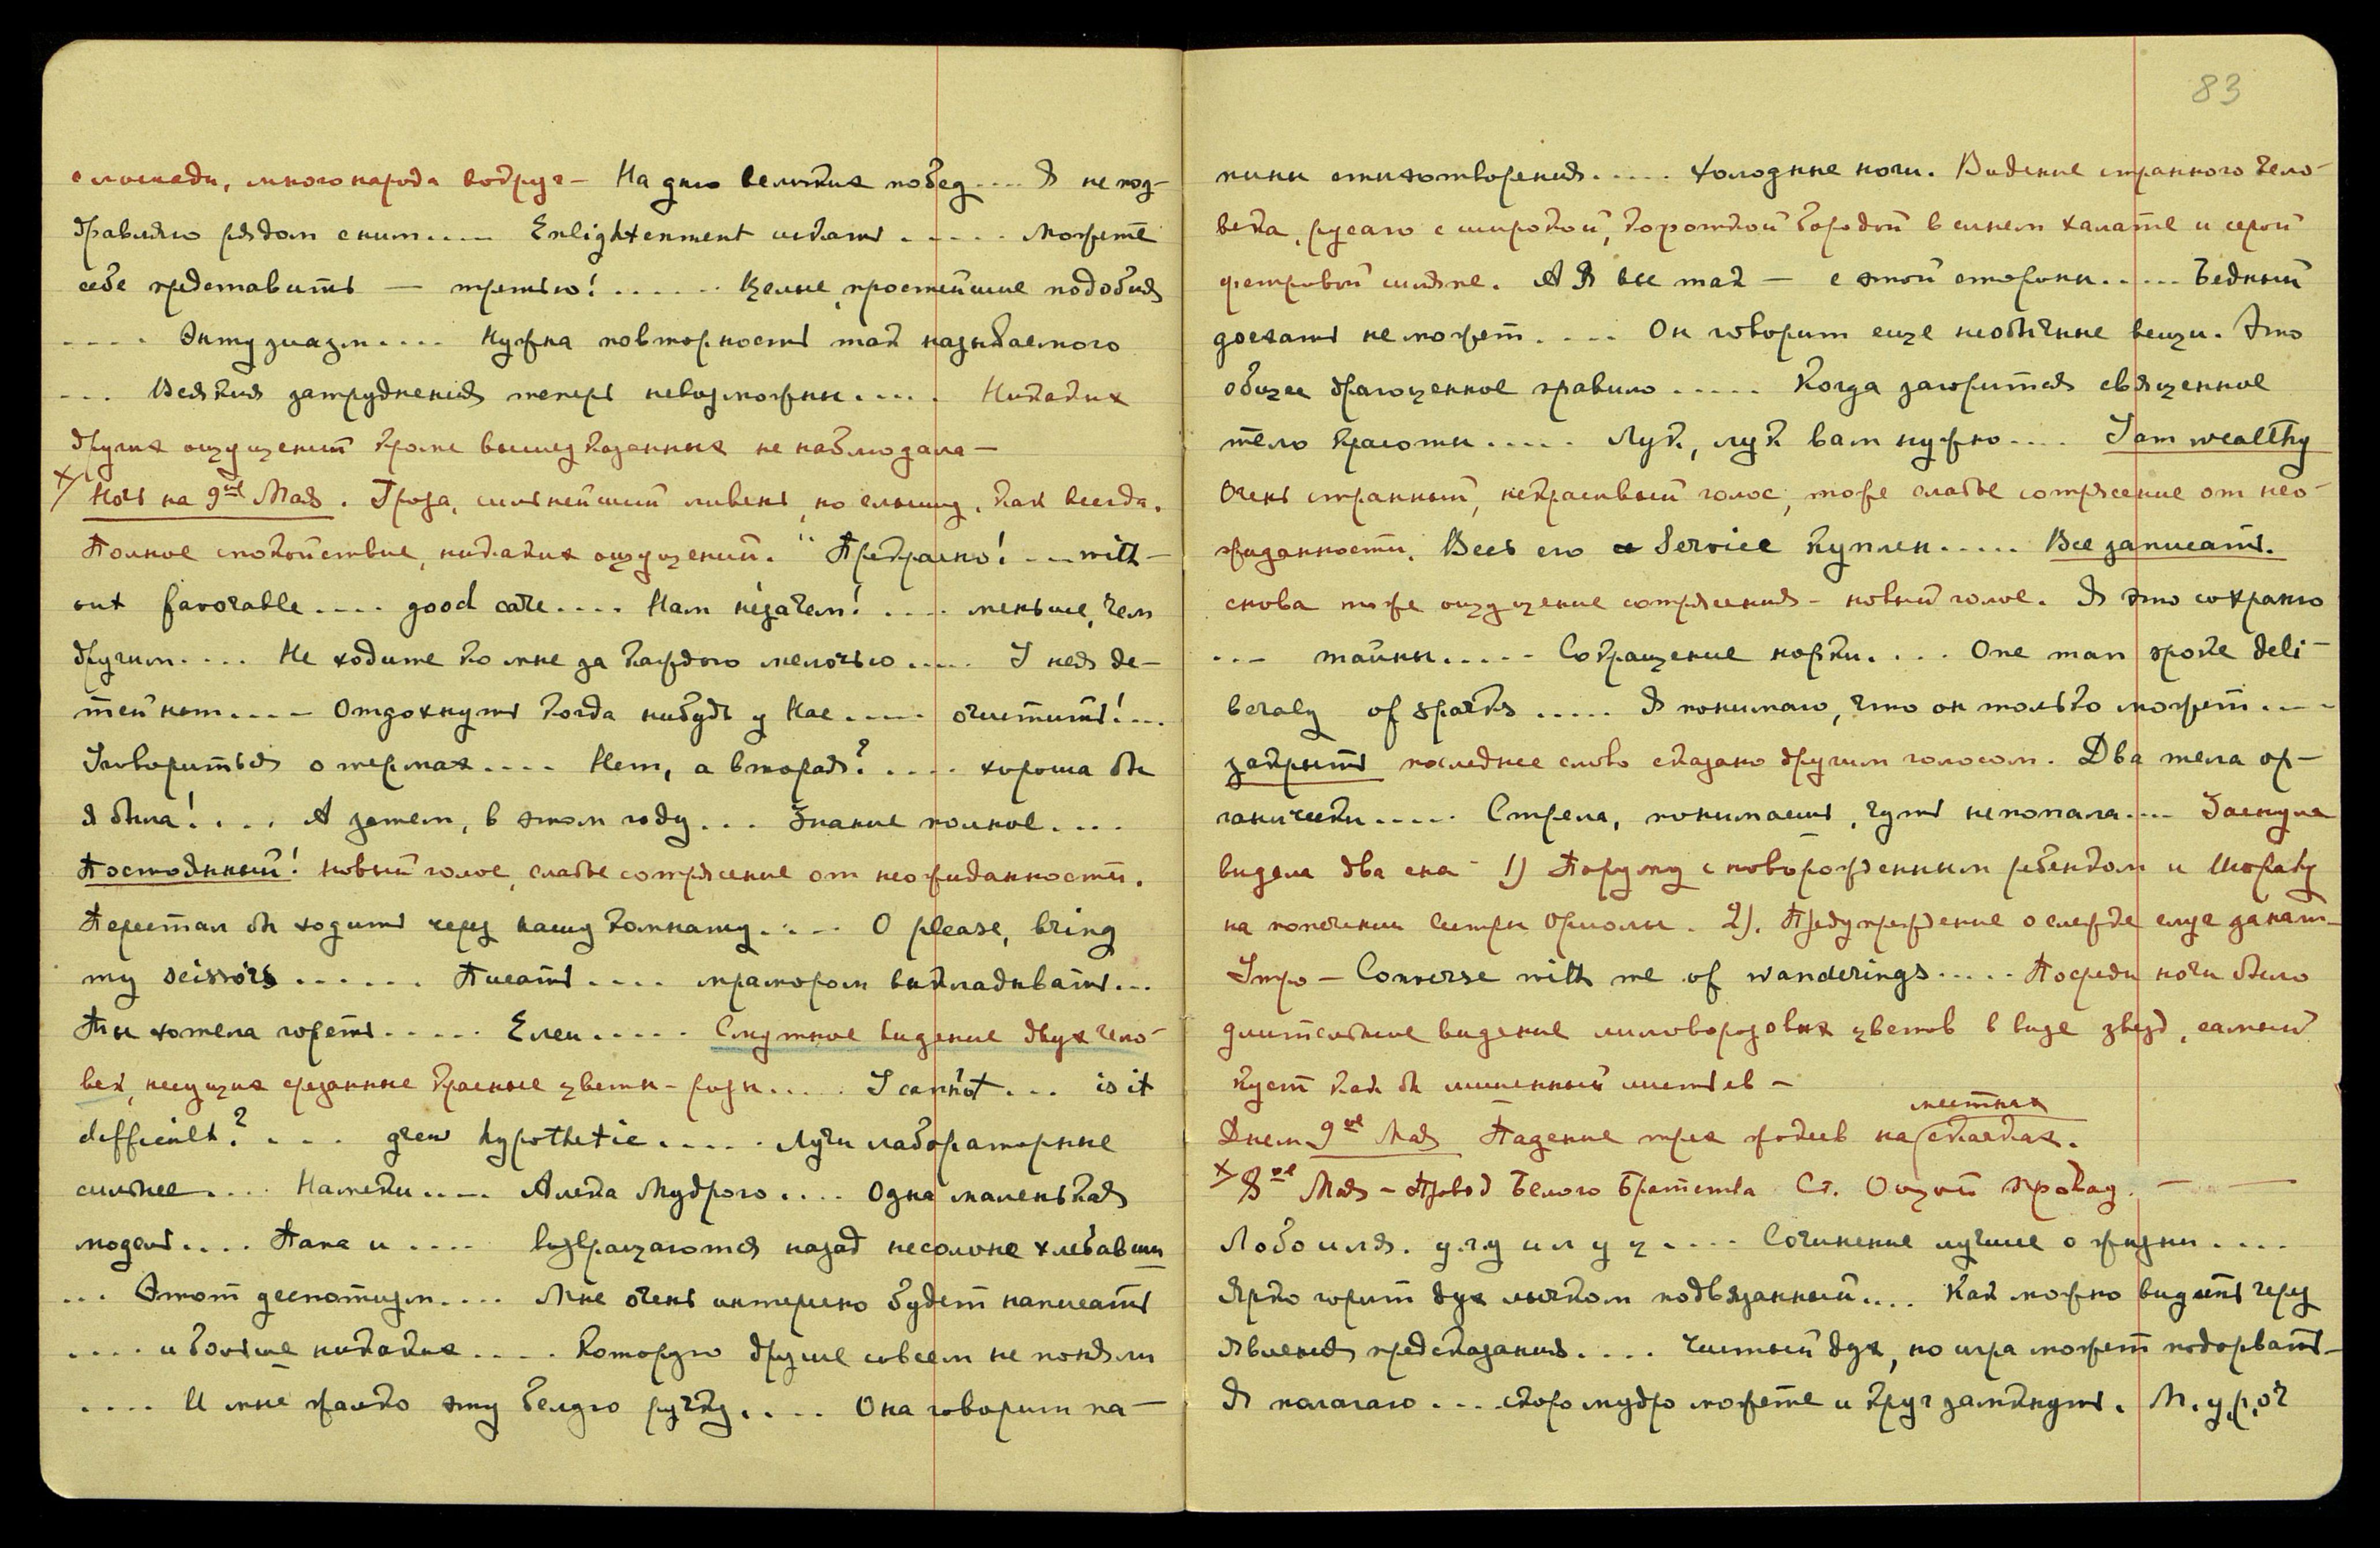 с лошади, много народа вокруг – На дню великих побед.... Я не поз-
дравляю рядом с ним.... Enlightenment искать ..... Можете
себе представить — третью! ...... Целые, простейшие подобия
.... Энтузиазм.... Нужна повторность так называемого
... Всякия затруднения теперь невозможны..... Никаких
других ощущений кроме вышеуказанных не наблюдала –
х/ Ночь на 9ое Мая. Гроза, сильнейший ливень, но слышу, как всегда.
Полное спокойствие, никаких ощущений. " Прекрасно! ... with-
out favorable .... good care.... Нам незачем! .... меньше, чем
другим.... Не ходите ко мне за каждою мелочью..... У нея де-
тей нет.... Отдохнуть когда нибудь у Нас..... очистить!...
Уговориться о термах.... Нет, а вторая? .... хороша бы
я была! .... А затем, в этом году... Знание полное....
Постоянный! новый голос, слабое сотрясение от неожиданности.
Перестал бы ходить через нашу комнату..... O please, bring
my scissors ...... Писать .... мрамором выкладывать...
Ты хотела гореть..... Если..... Смутное видение двух чело-
век, несущих срезанные красные цветы – розы..... I cannot ... is it
difficult? .... grew hypothetic ..... Лучи лабораторные
сильнее.... Намеки..... Алека Мудрого.... Одна маленькая
модель.... Папа и .... возвращаются назад несолоно хлебавши
... Этот деспотизм.... Мне очень интересно будет написать
.... и больше никаких..... Которую другие совсем не поняли
.... И мне жалко эту белую ручку..... Она говорит на –
83
пины стихотворения..... Холодные ночи. Видение странного чело-
века, русаго с широкой, короткой бородой в синем халате и серой
фетровой шляпе. А Я все так — с этой стороны..... Бедный
доехать не может.... Он говорит еще необычные вещи. Это
общее драгоценное правило ..... Когда загорится священное
тело красоты..... Лук, лук вам нужно.... I am wealthy
Очень странный, некрасивый голос, тоже слабое сотрясение от нео-
жиданности. Весь его Service куплен..... Все записать.
снова тоже ощущение сотрясения – новый голос. Я это сохраню
... тайны..... Сокращение норки.... One man spoke deli-
beraly of sparks ..... Я понимаю, что он только может....
закрыть последнее слово сказано другим голосом. Два тела ор-
ганически..... Стрела, понимаешь, чуть не попала.... Заснула
видела два сна – 1) Поруму с новорожденным ребенком и Шораву
на попечении сестры Ориолы. 2). Предупреждение о слежке
Утро — Converse with me of wanderings ..... Посреди ночи было
длительное видение лиловорозовых цветов в виде звезд, самый
куст как бы лишенный листьев –
местных
Днем 9ое Мая Падение трех жодиев на складках.
х/ 8ое Мая – Провод Белого Братства Ст. Ощут провод. —
Лобоиля. у.г.у и л у ц .... Сочинение лучше о жизни ....
Ярко горит дух лычком подвязанный.... Как можно видеть через
явления предсказания.... Чистый дух, но игра может подорвать –
Я полагаю ... скоро мудро можете и круг замкнуть. М.у.р.оч